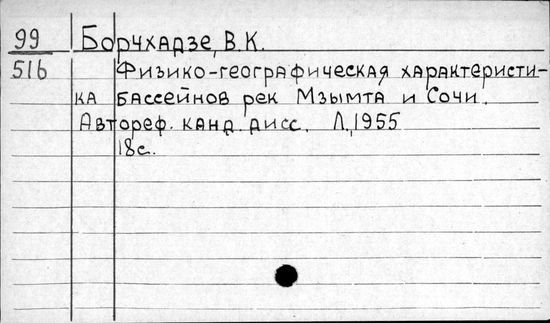 99 Борчхадзе, В.К.
516 Физико-географическая характеристи-
ка бассейнов рек Мзымта и Сочи.
Автореф. канд. дисс. Л., 1955
18с.